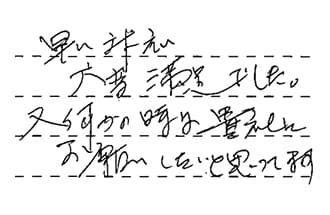 早い対応い
大変満足でした。
又何かの時は貴社に
お願いしたいと思ってます